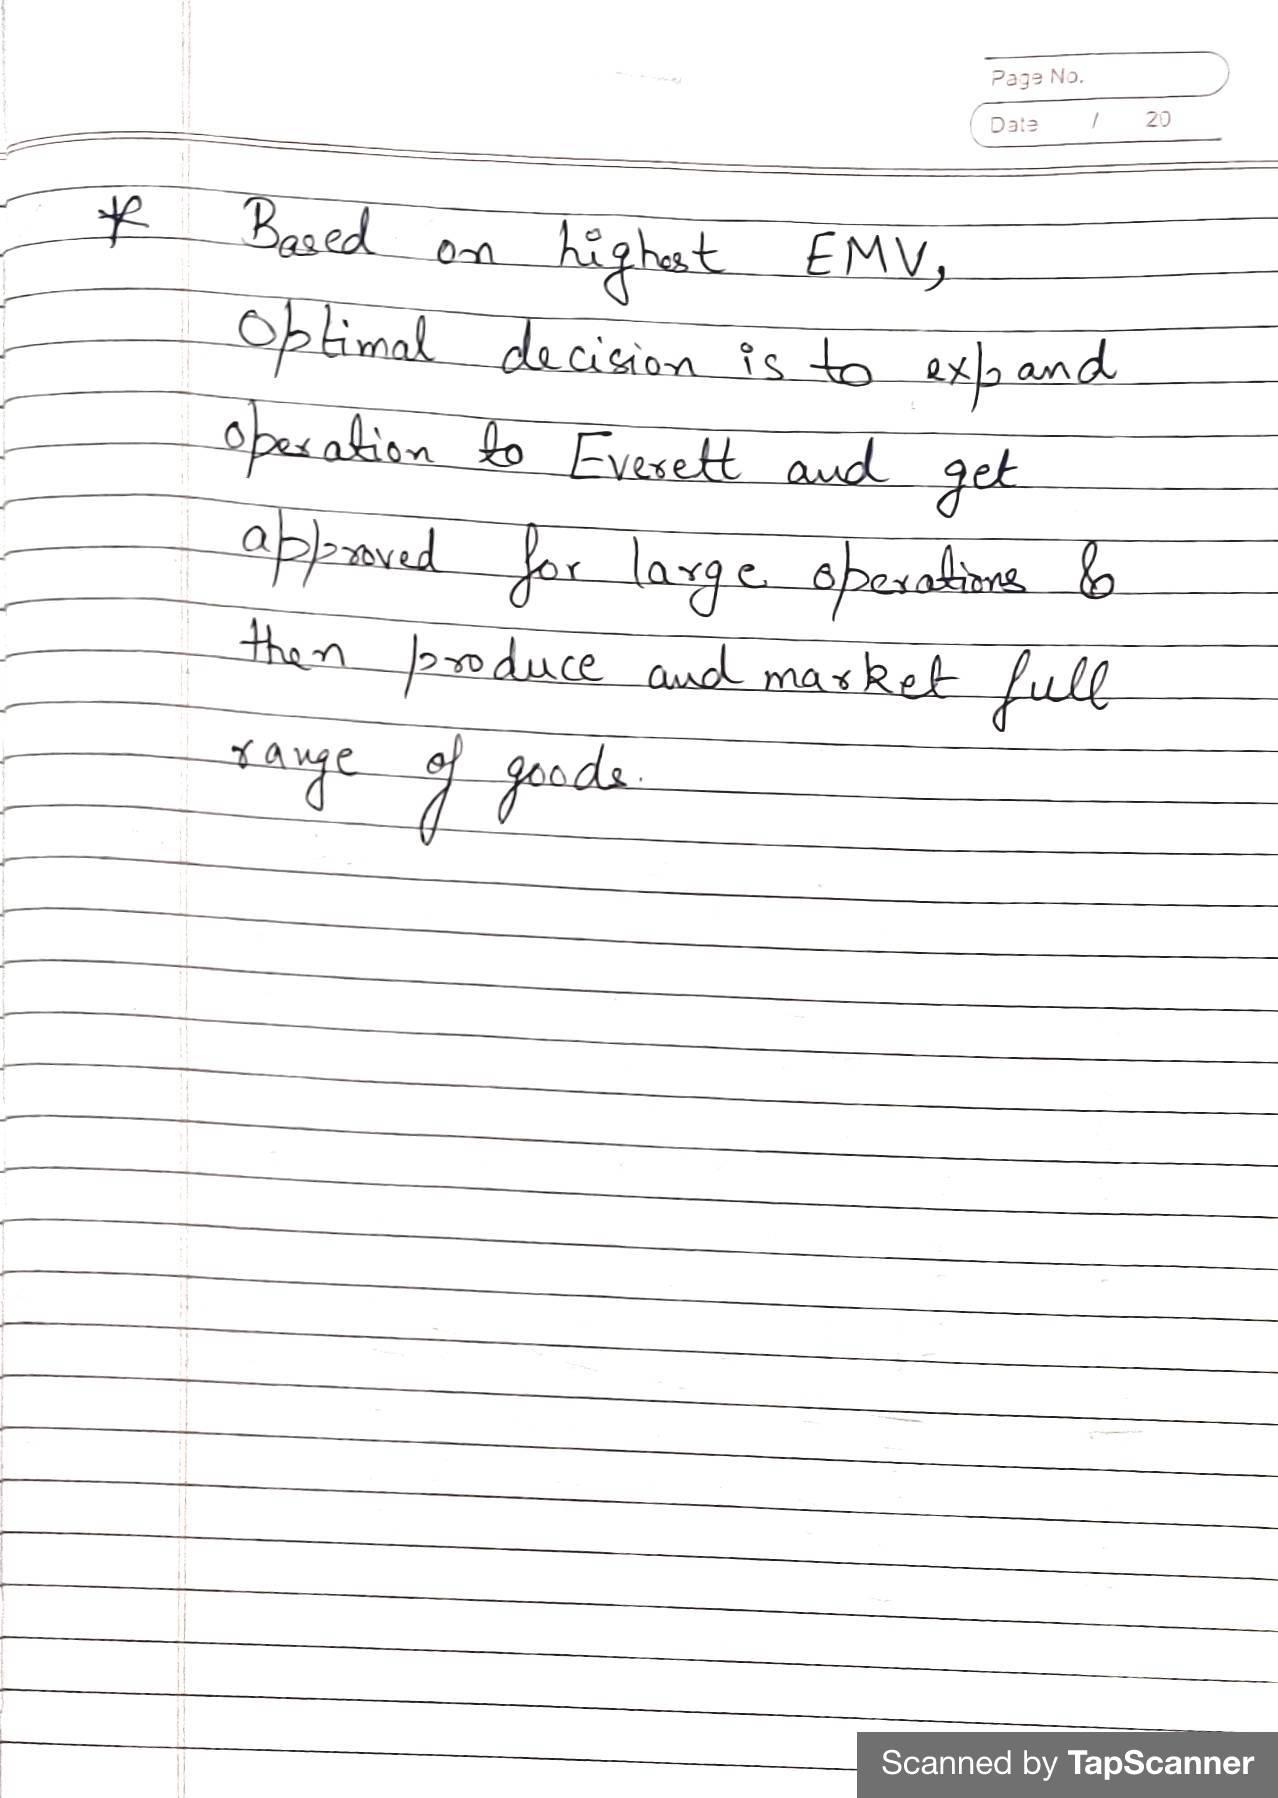 Page No.
Date / 20
* Based on highest EMV,
Optimal decision is to expand
operation to Everett and get
approved for large operations &
then produce and market full
range of goods.
Scanned by TapScanner